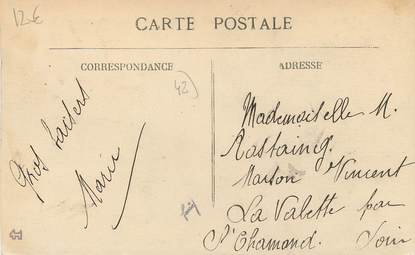 12€
CARTE POSTALE
CORRESPONDANCE
ADRESSE
42
Gros baisers
Marie
Mademoiselle M.
Rastaing.
Maison Vincent
La Valette par
St Chamond. Loire